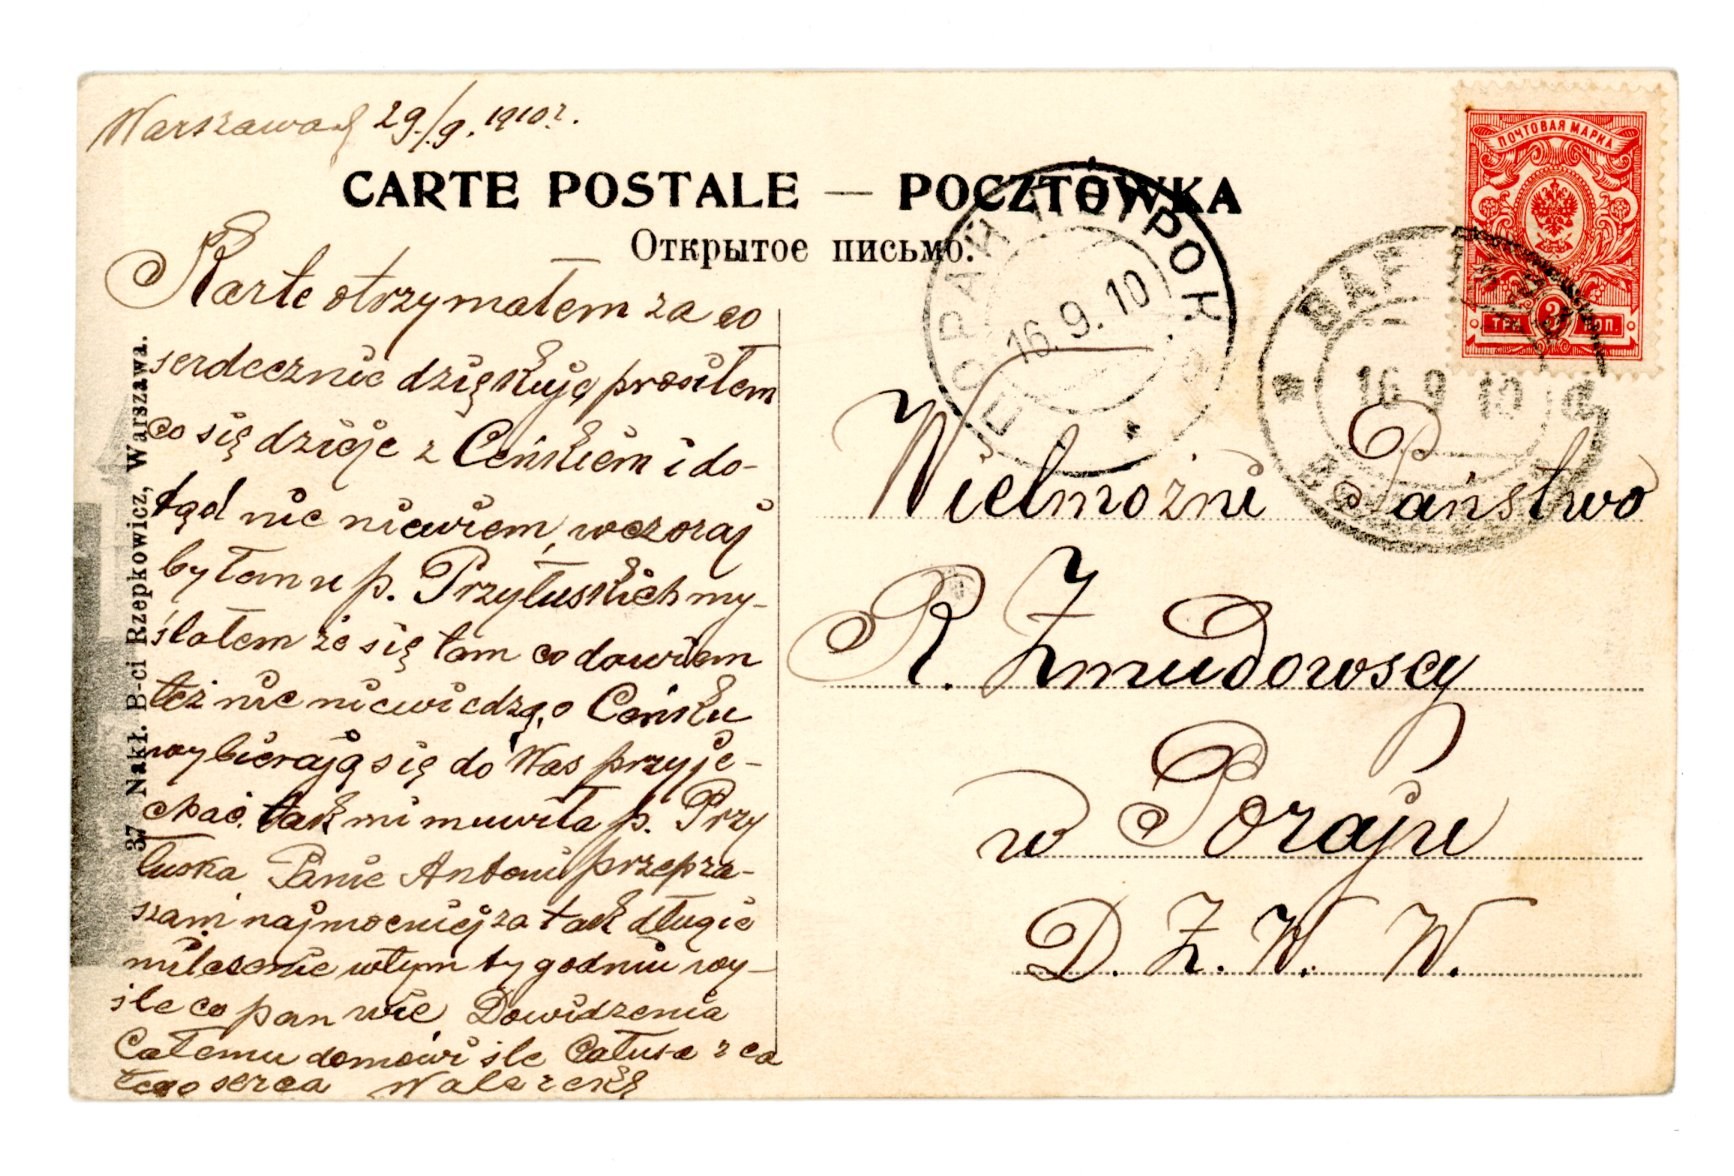 Warszawa d 29/9. 1910 r.
CARTE POSTALE — POCZTÓWKA
Открытое письмо.
Karte otrzymałem za co
serdecznie dziękuję prosiłem
co się dzieje z Ceńskiem i do-
tąd nic niewiem, wczoraj
byłam u p. Przyłuskich my-
ślałem że się tam co dowiem
też nic niewiedzą, o Ceńsku
wybierają się do Was przyje-
chać. tak mi muwiła p. Przy
łuska Panie Antoni przepra-
szam najmocniej za tak długie
milczenie wtym tygodniu wy-
śle co pan wie Dowidzenia
Całemu domowi śle Całusa z ca
łego serca
37 Nakł. B-ci Rzepkowicz, Warszawa.
ПОЧТОВАЯ МАРКА
3
ТРИ КОП.
16.9.10
16 9 10
Wielmożni Państwo
R. Zmudowscy
w Poraju
D. Z. W. W.